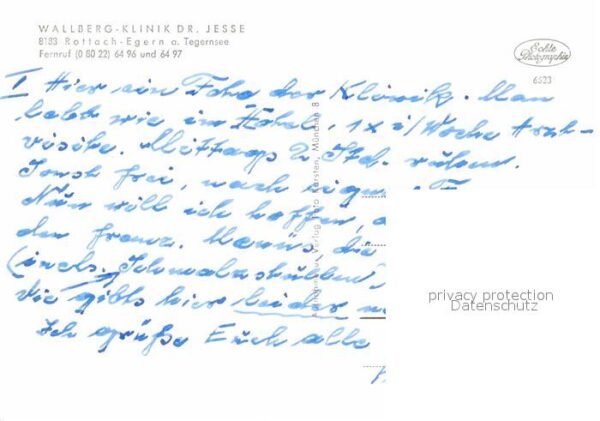 WALLBERG-KLINIK DR. JESSE
8183 Rottach-Egern a. Tegernsee
Fernruf (0 80 22) 64 96 und 64 97
Echte
Photographie
6523
I Hier ein Foto der Klinik. Man
lebt wie im Hotel, 1x i/Woche Arzt-
visite. Mittags 2 Std. ruhen.
Sonst frei, nach eign
Nun will ich hoffen,
den franz. Menüs, die
(incls. Schmalzstullen)
die gibts hier leider
Ich grüße Euch alle
Verlag Foto Karsten, München 8
privacy protection
Datenschutz